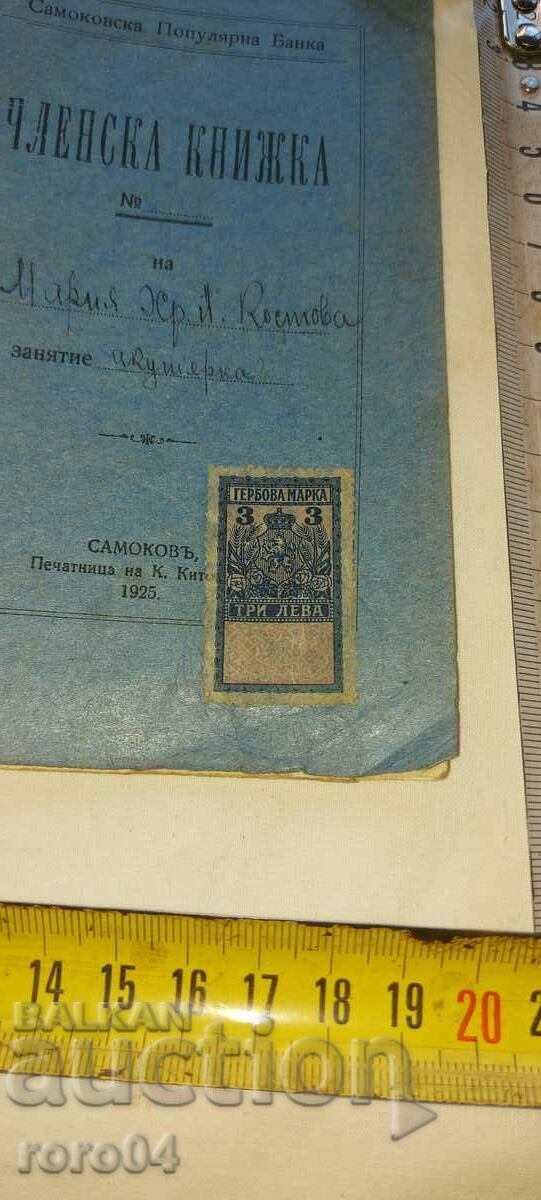 Самоковска Популярна Банка
ЧЛЕНСКА КНИЖКА
№
на
Мария Хр. П. Костова
занятие акушерка
САМОКОВЪ,
Печатница на К. Кит
1925.
ГЕРБОВА МАРКА
3 3
ТРИ ЛЕВА
14 15 16 17 18 19 20
BALKAN
auction
roro04